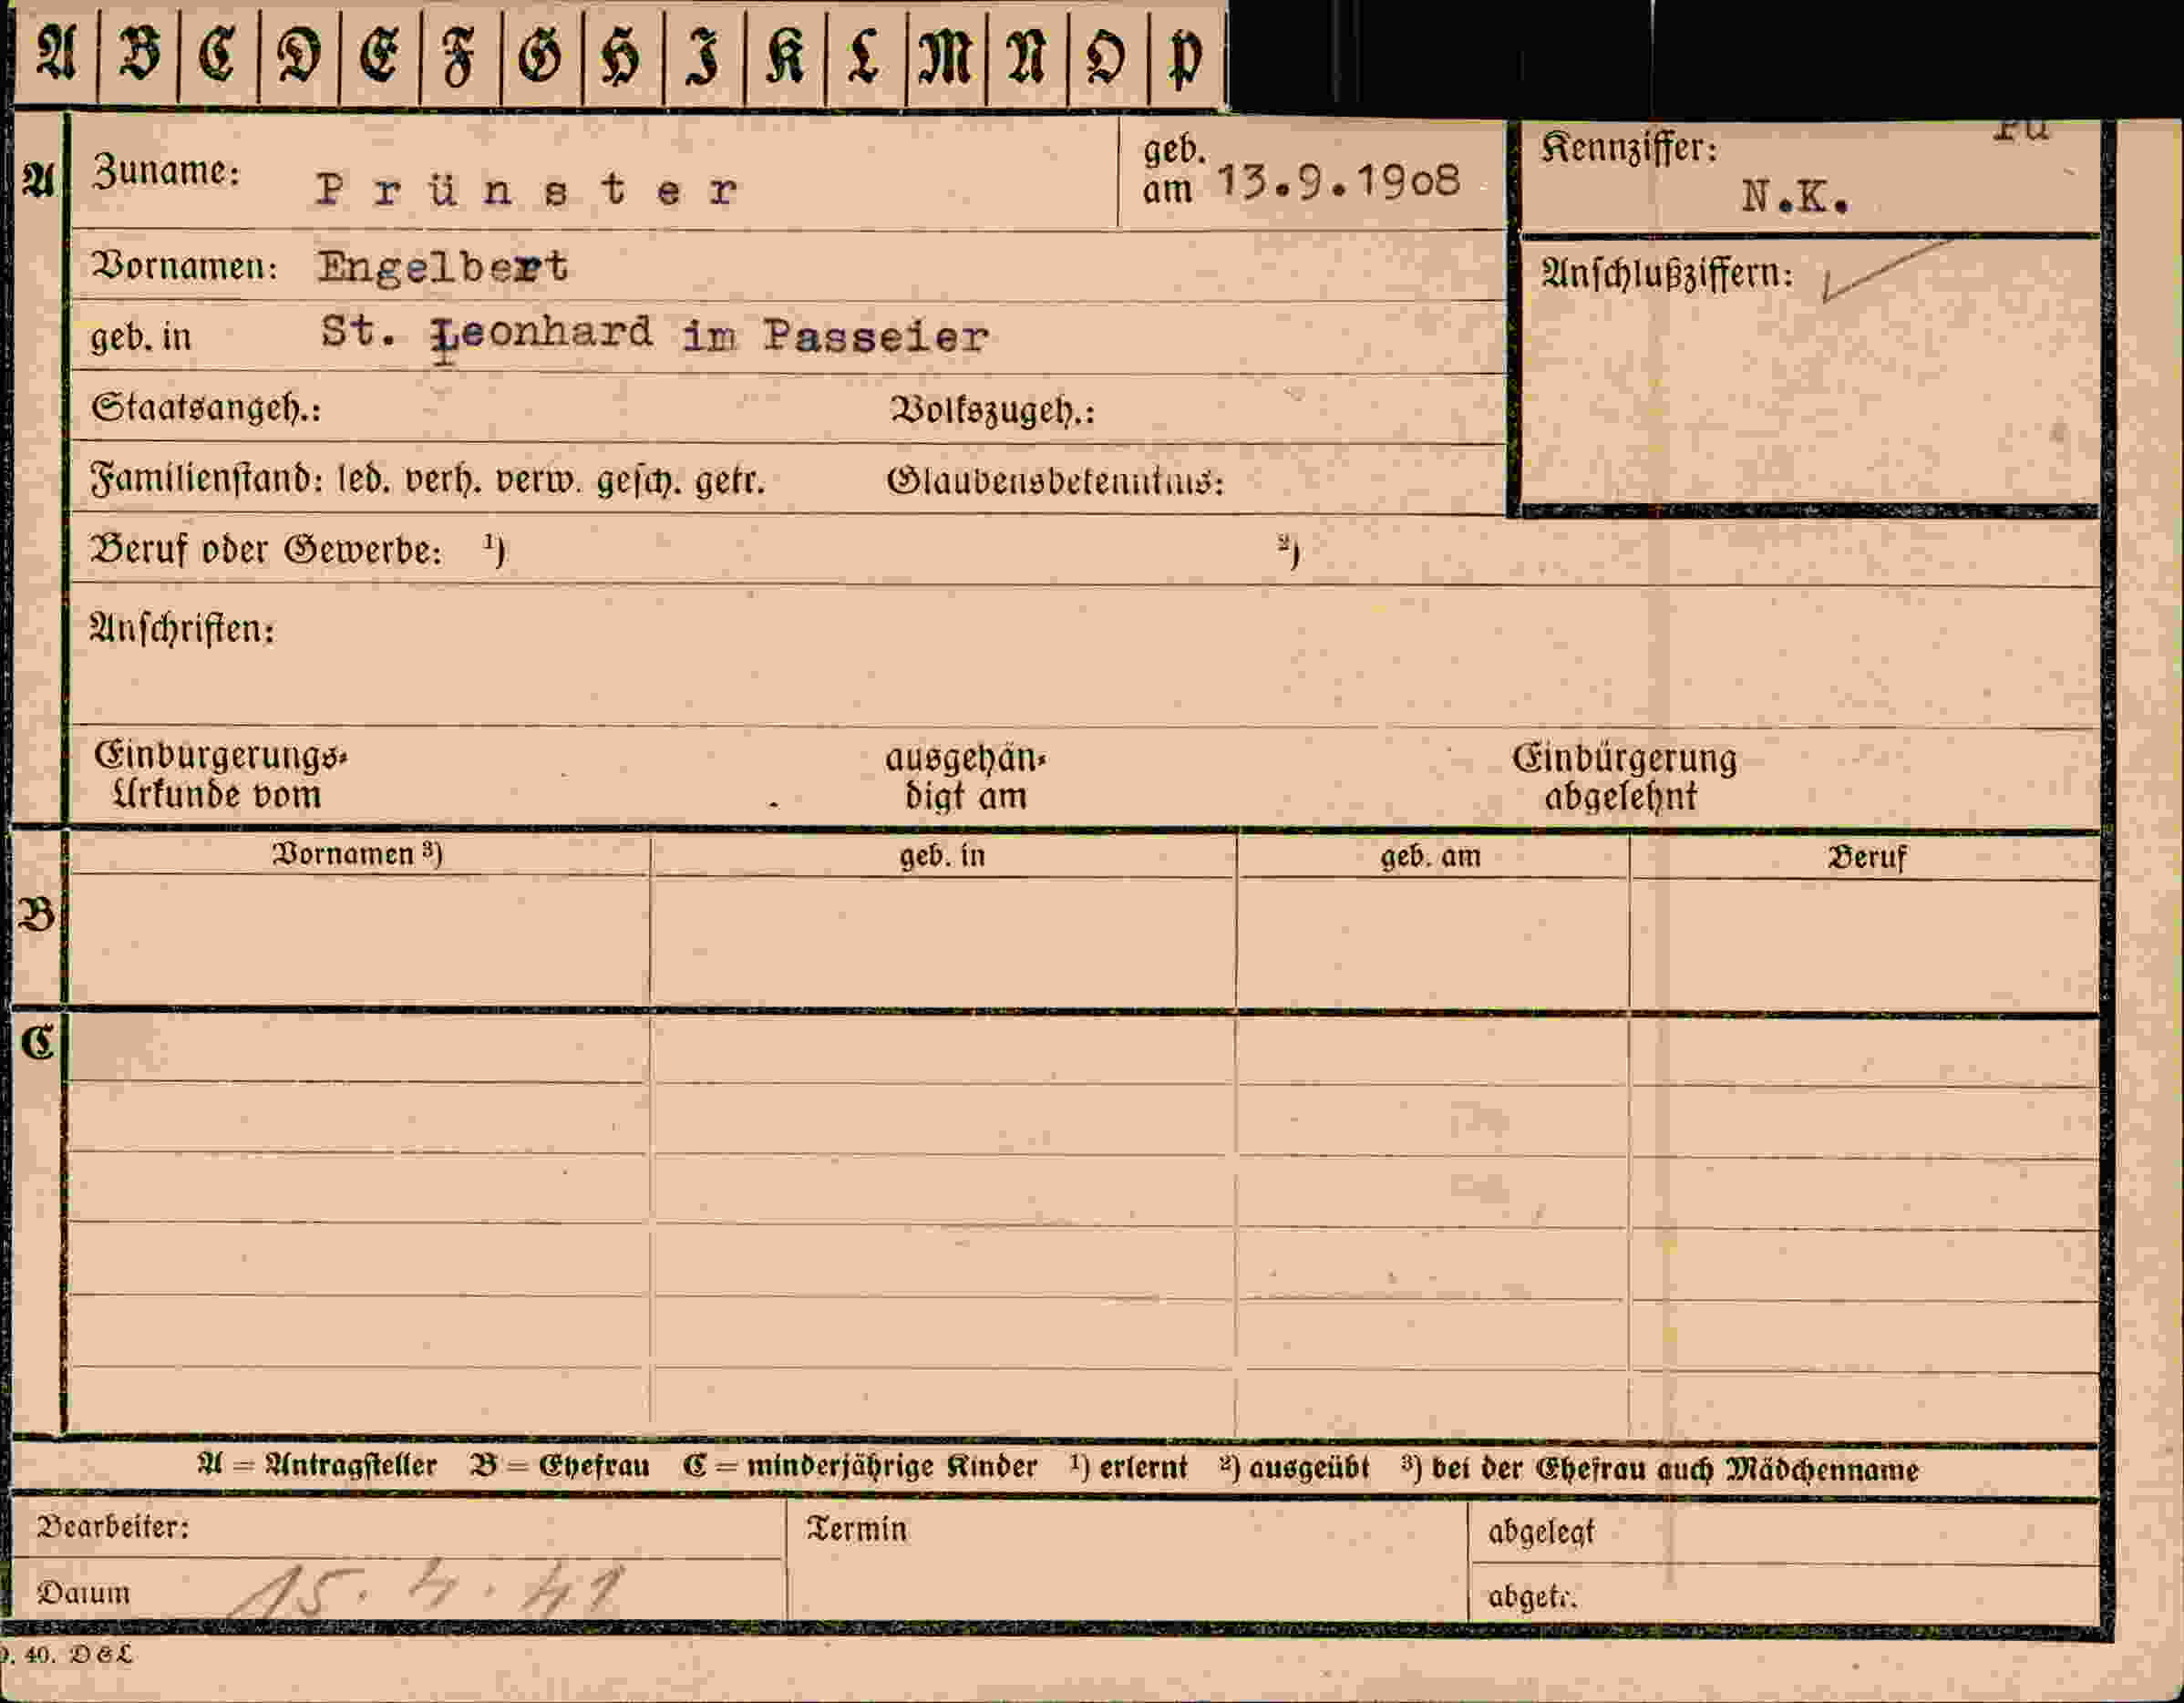 A B C D E F G H I K L M N O P
A Zuname: Prünster geb. am 13.9.1908 Kennziffer: N.K.
Vornamen: Engelbert Anschlußziffern:
geb. in St. Leonhard im Passeier
Staatsangeh.: Volkszugeh.:
Familienstand: led. verh. verw. gesch. getr. Glaubensbekenntnis:
Beruf oder Gewerbe: ¹) ²)
Anschriften:
Einbürgerungs- ausgehän- Einbürgerung
Urkunde vom digt am abgelehnt
Vornamen ³) geb. in geb. am Beruf
B
C
A = Antragsteller B = Ehefrau C = minderjährige Kinder ¹) erlernt ²) ausgeübt ³) bei der Ehefrau auch Mädchenname
Bearbeiter: Termin abgelegt
Datum 15. 4. 41 abgetr.
40. D & L